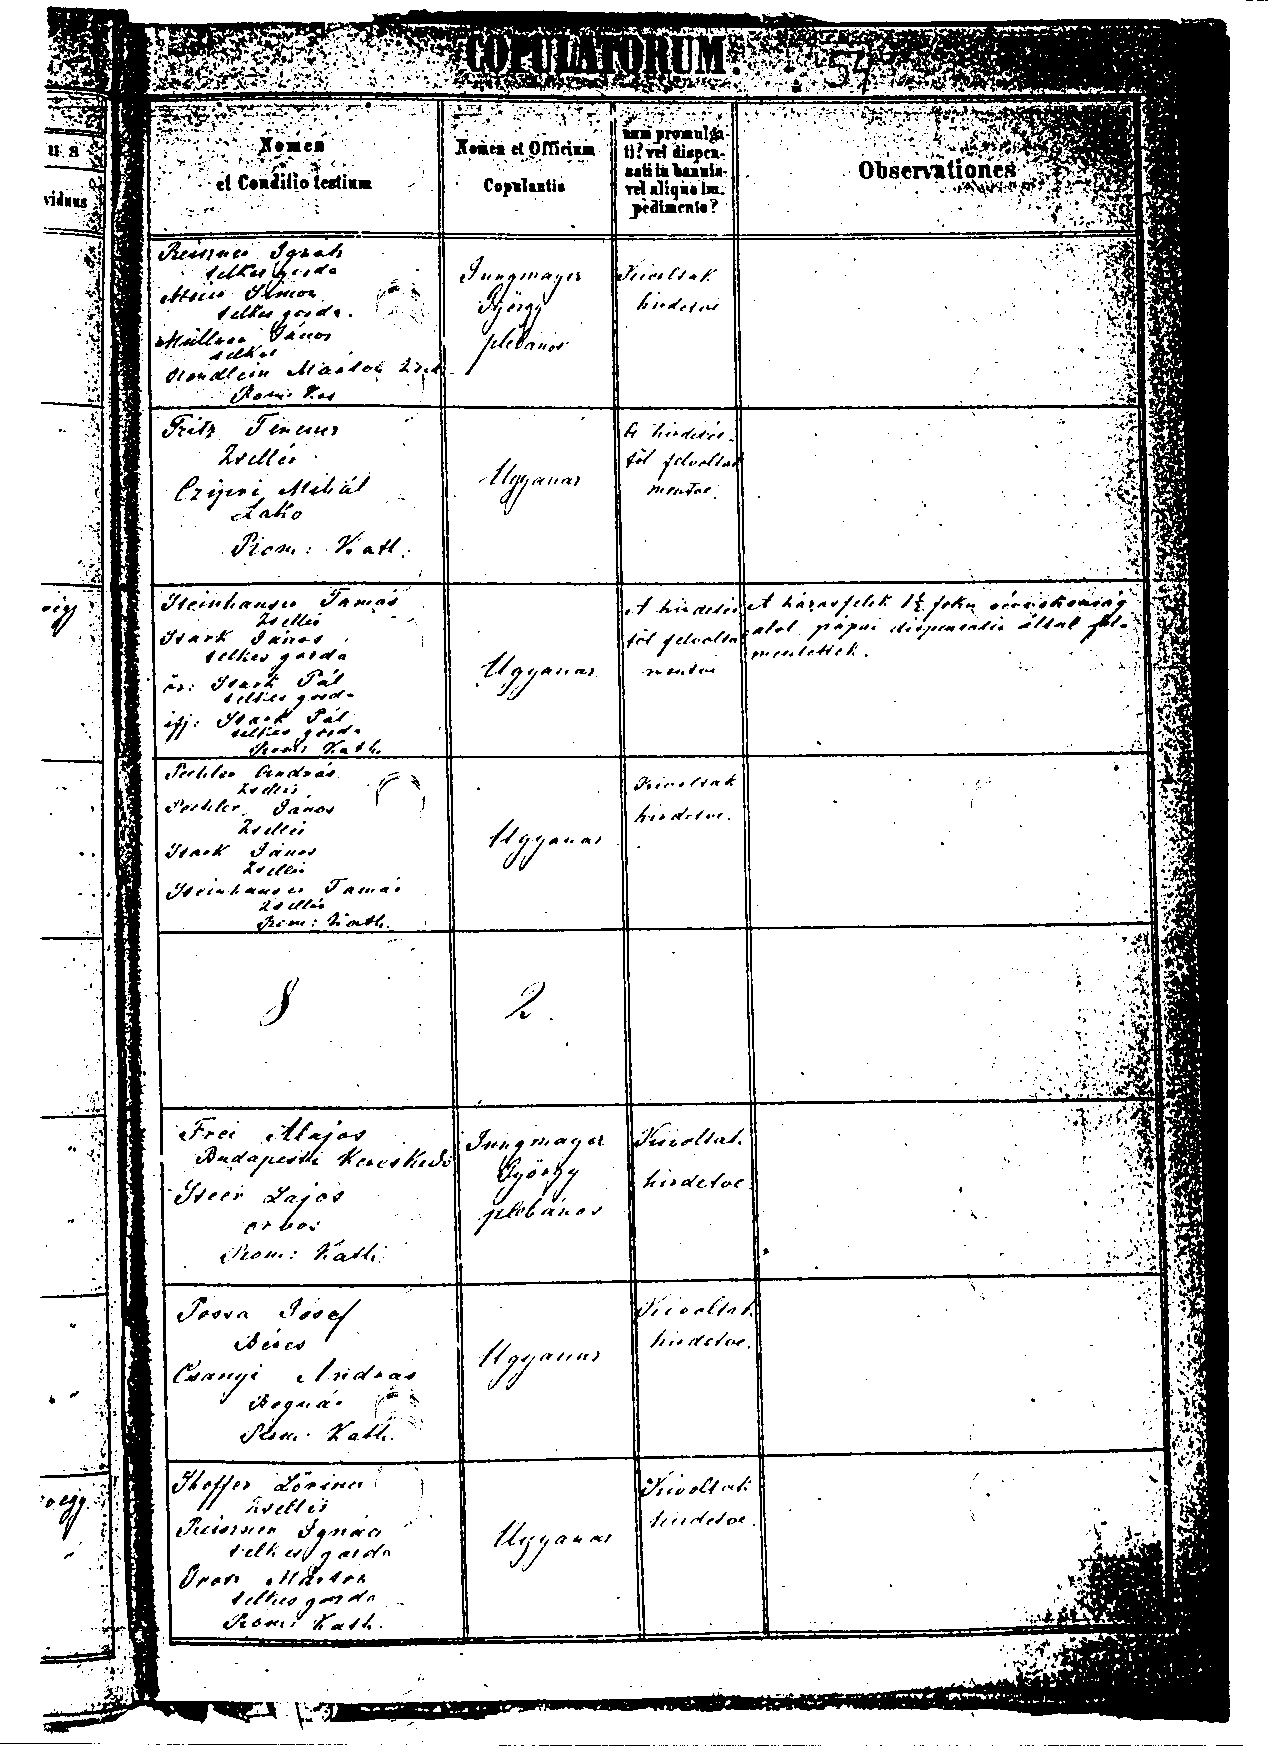 COPULATORUM.
57
us
viduus
Nomen
et Conditio testium
Nomen et Officium
Copulantis
num promulga-
ti? vel dispen-
sati in bannis
vel aliquo im-
pedimento?
Observationes
Reisner Ignátz
telkes gazda
Simon
telkes gazda.
Müllner János
telkes
Hendlein Márton Zsel
Rom: Kat
Jungmayer
György
plébános
Kivoltak
hirdetve
Fritz Ferencz
Zsellér
Mihál
Lakó
Rom: Kath.
Ugyanaz
A hirdetés-
től felvoltak
mentve.
Steinhauser Tamás
Zsellér
Stark János
telkes gazda
ör: Stark Pál
telkes gazda
ifj: Stark Pál
telkes gazda
Rom: Kath.
Ugyanaz
A hirdetés
től felvoltak
mentve
A házasfelek foku vérrokonság
alol pápai dispensatio által fel-
mentettek.
Pechler András
Zsellér
Pechler János
Zsellér
Stark János
Zsellér
Steinhauser Tamás
Zsellér
Rom: Kath.
Ugyanaz
Kivoltak
hirdetve.
8
2
Frei Alajos
Budapesti Kereskedő
Steer Lajos
orvos
Rom: Kath.
Jungmayer
György
plébános
Kivoltak
hirdetve
Possa József
Béres
Csanyi Andras
Bognár
Rom. Kath.
Ugyanaz
Kivoltak
hirdetve.
Hoffer Lőrincz
Zsellér
Reisner Ignácz
telkes gazda
Márton
telkes gazda
Rom: Kath.
Ugyanaz
Kivoltak
hirdetve.